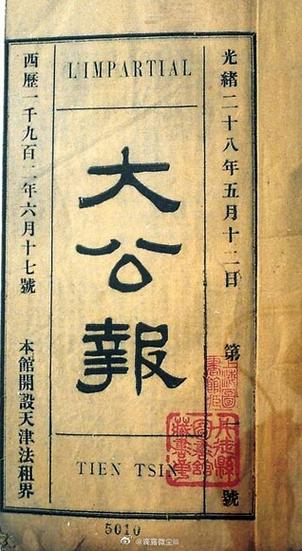 光緒二十八年五月十二日
第一號
L'IMPARTIAL
大公報
TIEN TSIN
西歷一千九百二年六月十七號
本館開設天津法租界
5010